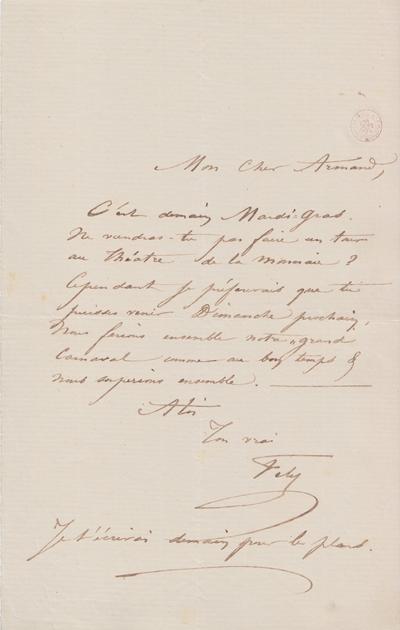 Mon cher Armand,
C'est demain Mardi-Gras.
Ne vendras-tu pas faire un tour
au théâtre de la monnaie ?
Cependant je préfererais que tu
puisses venir Dimanche prochain,
Nous ferions ensemble notre grand
Carnaval comme au bon temps &
nous souperions ensemble.
A toi
Ton vrai
Fély
Je t'écrirai demain pour les plans.